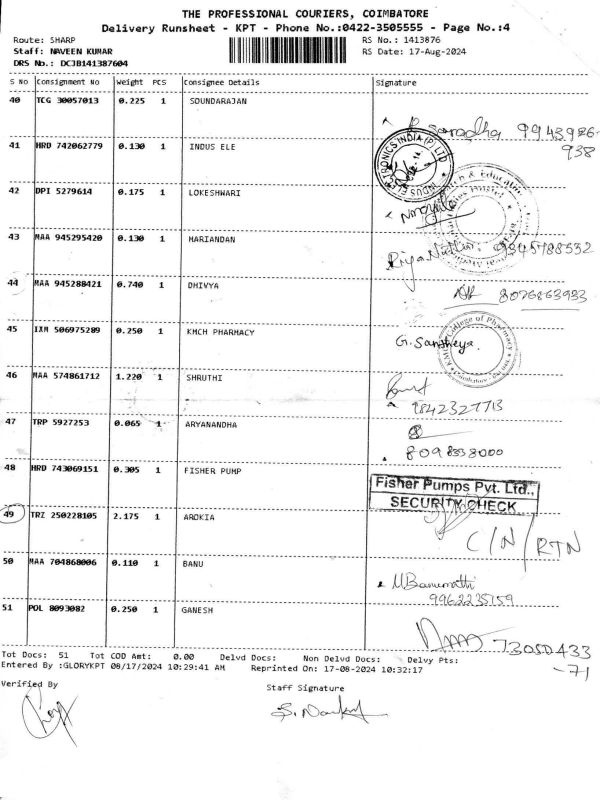 THE PROFESSIONAL COURIERS, COIMBATORE
Delivery Runsheet - KPT - Phone No.:0422-3505555 - Page No.:4
Route: SHARP RS No.: 1413876
Staff: NAVEEN KUMAR RS Date: 17-Aug-2024
DRS No.: DCJB141387604
S No Consignment No Weight PCS Consignee Details Signature
40 TCG 30057013 0.225 1 SOUNDARAJAN
P Saradha 9943926-
938
41 HRD 742062779 0.130 1 INDUS ELE
ELECTRONICS INDIA (P) LTD
INDUS
42 DPI 5279614 0.175 1 LOKESHWARI
43 MAA 945295420 0.130 1 HARIANDAN
44 MAA 945288421 0.740 1 DHIVYA
8076863983
45 IXM 506975289 0.250 1 KMCH PHARMACY
G. Santheya.
College of Pharmacy
46 MAA 574861712 1.220 1 SHRUTHI
9842327713
47 TRP 5927253 0.065 1 ARYANANDHA
8098338000
48 HRD 743069151 0.305 1 FISHER PUMP
Fisher Pumps Pvt. Ltd.,
SECURITY CHECK
49 TRZ 250228105 2.175 1 AROKIA
C/N/RTN
50 MAA 704868006 0.110 1 BANU
M Banumathi
9962235759
51 POL 8093082 0.250 1 GANESH
7305D433
-71
Tot Docs: 51 Tot COD Amt: 0.00 Delvd Docs: Non Delvd Docs: Delvy Pts:
Entered By :GLORYKPT 08/17/2024 10:29:41 AM Reprinted On: 17-08-2024 10:32:17
Verified By
Staff Signature